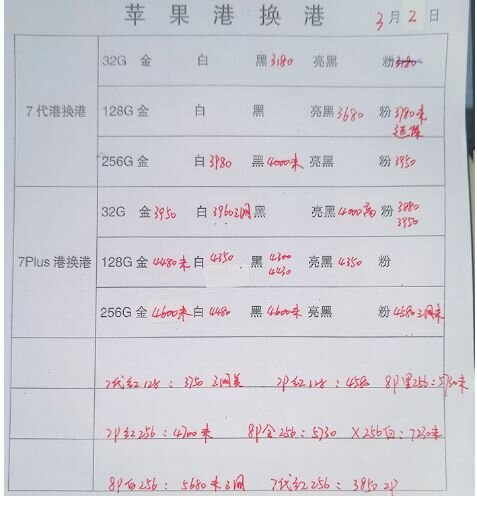 苹果港换港 3月2日
32G 金 白 黑3180 亮黑 粉3180
7代港换港 128G 金 白 黑 亮黑3680 粉3780未
256G 金 白3980 黑4000未 亮黑 粉3950
32G 金3950 白3960三网 黑 亮黑4000高 粉3880
3950
7Plus港换港 128G 金4480未 白4350 黑4300 亮黑4350 粉
4430
256G 金4600未 白4480 黑4600未 亮黑 粉4580三网未
7代红128：3750三网美 7P红128：4580 8P黑256：5730未
7P红256：4700未 8P金256：5730 X256白：7230未
8P白256：5680未三网 7代红256：3850